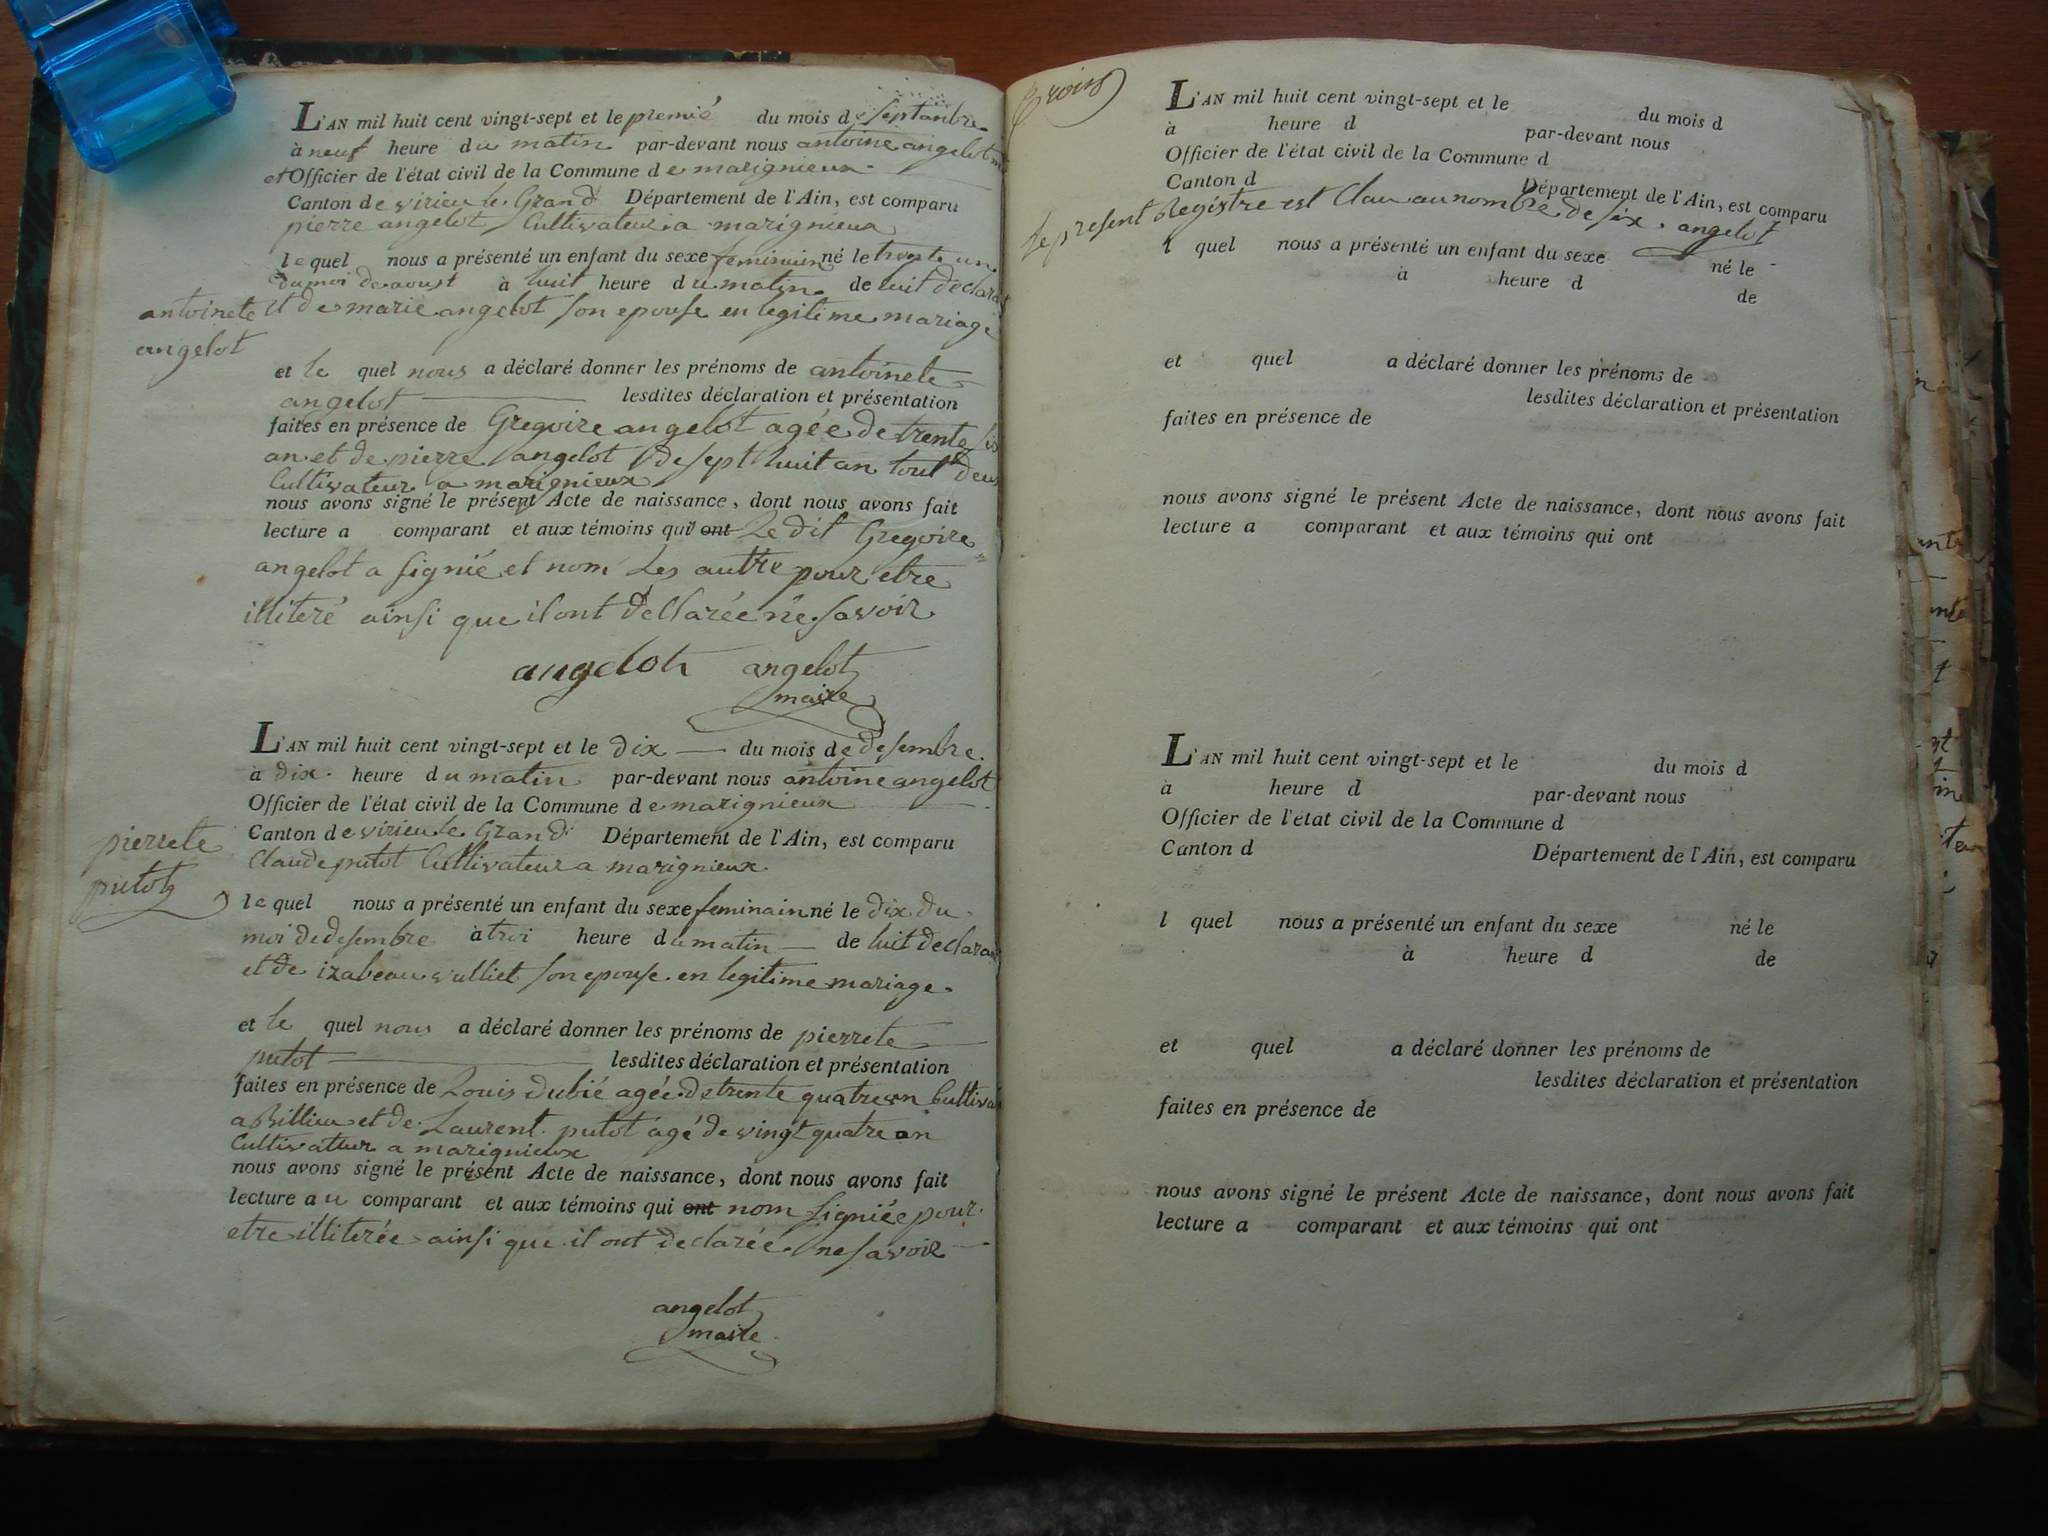 L'AN mil huit cent vingt-sept et le premié du mois de septanbre
à neuf heure du matin par-devant nous antoine angelot
et Officier de l'état civil de la Commune de marignieux
Canton de virieu le Grand Département de l'Ain, est comparu
pierre angelot Cultivateur a marignieux
lequel nous a présenté un enfant du sexe feminin né le trente un
du moi de aoust à huit heure du matin de luit declarant
antoinete
et de marie angelot son epouse en legitime mariage
angelot
et le quel nous a déclaré donner les prénoms de antoinete
angelot lesdites déclaration et présentation
faites en présence de Gregoire angelot agée de trente six
an et de pierre angelot de sept huit an tout deux
Cultivateur a marignieux
nous avons signé le présent Acte de naissance, dont nous avons fait
lecture a comparant et aux témoins qui ont Le dit Gregoire
angelot a signié et nom Les autre pour etre
illiteré ainsi que il ont declarée ne savoir
angelot angelot
maire
L'AN mil huit cent vingt-sept et le dix du mois de desembre
à dix heure du matin par-devant nous antoine angelot
Officier de l'état civil de la Commune de marignieux
Canton de virieu le Grand Département de l'Ain, est comparu
pierrete
Claude putot Cultivateur a marignieux
putot
lequel nous a présenté un enfant du sexe feminain né le dix du
moi de desembre à troi heure du matin de luit declarant
et de izabeau vulliet son epouse en legitime mariage
et le quel nous a déclaré donner les prénoms de pierrete
putot lesdites déclaration et présentation
faites en présence de Louis dubié agée de trente quatre an Cultiva
a Billieu et de Laurent putot agé de vingt quatre an
Cultivateur a marignieux
nous avons signé le présent Acte de naissance, dont nous avons fait
lecture au comparant et aux témoins qui ont nom signiée pour
etre illiterée ainsi que il ont declarée ne savoir
angelot
maire
troix
L'AN mil huit cent vingt-sept et le du mois d
à heure d par-devant nous
Officier de l'état civil de la Commune d
Canton d Département de l'Ain, est comparu
Le present Registre est Clau au nombre de six. angelot
l quel nous a présenté un enfant du sexe né le
à heure d de
et quel a déclaré donner les prénoms de
lesdites déclaration et présentation
faites en présence de
nous avons signé le présent Acte de naissance, dont nous avons fait
lecture a comparant et aux témoins qui ont
L'AN mil huit cent vingt-sept et le du mois d
à heure d par-devant nous
Officier de l'état civil de la Commune d
Canton d Département de l'Ain, est comparu
l quel nous a présenté un enfant du sexe né le
à heure d de
et quel a déclaré donner les prénoms de
lesdites déclaration et présentation
faites en présence de
nous avons signé le présent Acte de naissance, dont nous avons fait
lecture a comparant et aux témoins qui ont